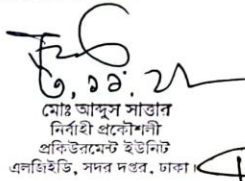 মোঃ আব্দুস সাত্তার
নির্বাহী প্রকৌশলী
প্রকিউরমেন্ট ইউনিট
এলজিইডি, সদর দপ্তর, ঢাকা।